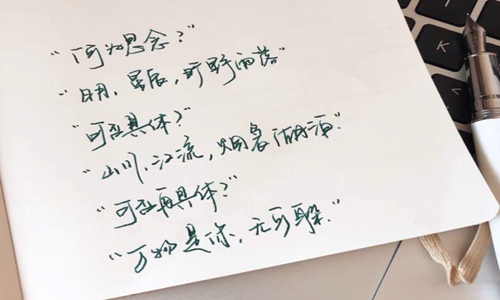 “何为思念？”
“日月、星辰，旷野雨落”
“可否具体？”
“山川、江流，烟袅湖泊”
“可否再具体？”
“万物是你，无可躲.”